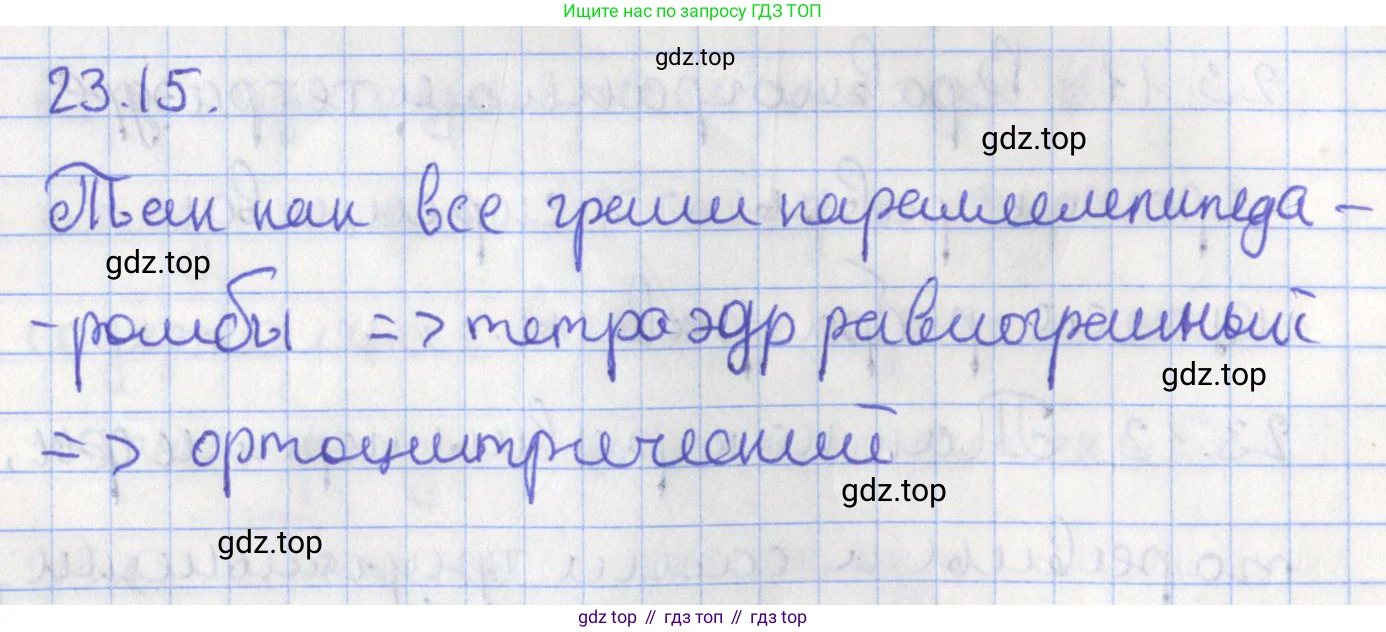 Ищите нас по запросу ГДЗ ТОП
gdz.top
23.15.
gdz.top
Так как все грани параллелепипеда -
gdz.top
- ромбы => тетраэдр равногранный
gdz.top
=> ортоцитрический
gdz.top
gdz.top
gdz top // гдз топ // gdz top